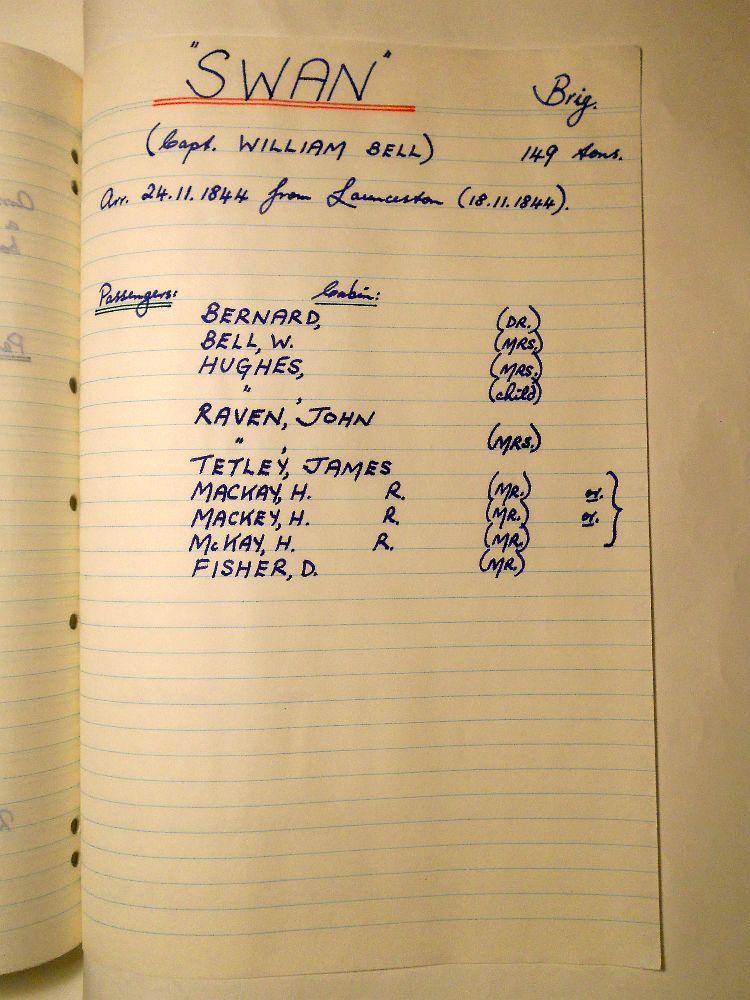 "SWAN" Brig.
(Capt. WILLIAM BELL) 149 tons.
Arr. 24.11.1844 from Launceston (18.11.1844).
Passengers: Cabin:
BERNARD, (DR.)
BELL, W. (MRS.)
HUGHES, (MRS.)
" , (child)
RAVEN, JOHN
" , (MRS.)
TETLEY, JAMES
MACKAY, H. R. (MR.) or.
MACKEY, H. R. (MR.) or.
McKAY, H. R. (MR.)
FISHER, D. (MR.)